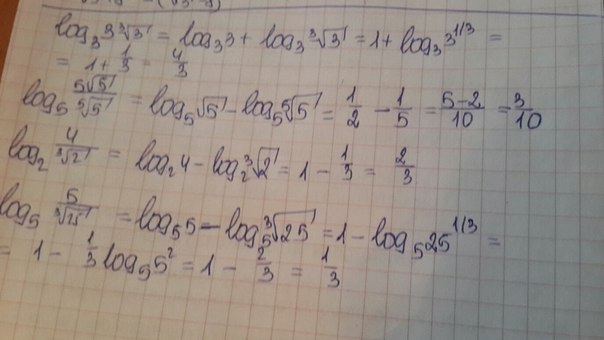 log₃ 3 ∛3 = log₃ 3 + log₃ ∛3 = 1 + log₃ 3^(1/3) =
= 1 + 1/3 = 4/3
log₅ 5√5/⁵√5 = log₅ √5 - log₅ ⁵√5 = 1/2 - 1/5 = (5-2)/10 = 3/10
log₂ 4/∛2 = log₂ 4 - log₂ ∛2 = 1 - 1/3 = 2/3
log₅ 5/∛25 = log₅ 5 - log₅ ∛25 = 1 - log₅ 25^(1/3) =
= 1 - 1/3 log₅ 5² = 1 - 2/3 = 1/3